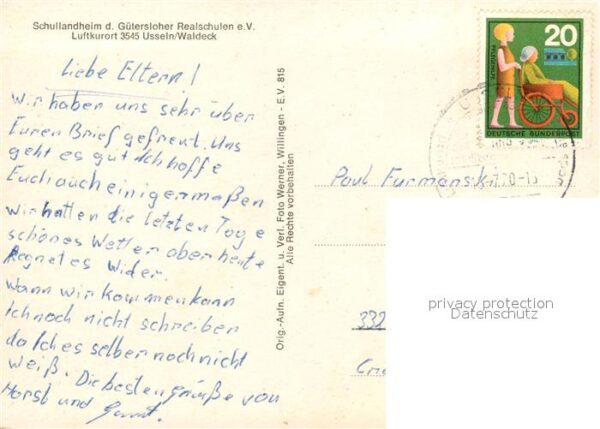 Schullandheim d. Gütersloher Realschulen e.V.
Luftkurort 3545 Usseln/Waldeck
Liebe Eltern!
Wir haben uns sehr über
Euren Brief gefreut. Uns
geht es gut Ich hoffe
Euch auch einigermaßen
Wir hatten die letzten Tage
schönes Wetter aber heute
Regnet es Wider.
Wann wir kommen kann
Ich noch nicht schreiben
da Ich es selber noch nicht
weiß. Die besten grüße von
Horst und
Orig.-Aufn. Eigent. u. Verl. Foto Werner, Willingen - E.V. 815
Alle Rechte vorbehalten
20
DEUTSCHE BUNDESPOST
Paul Furmansk
332
privacy protection
Datenschutz